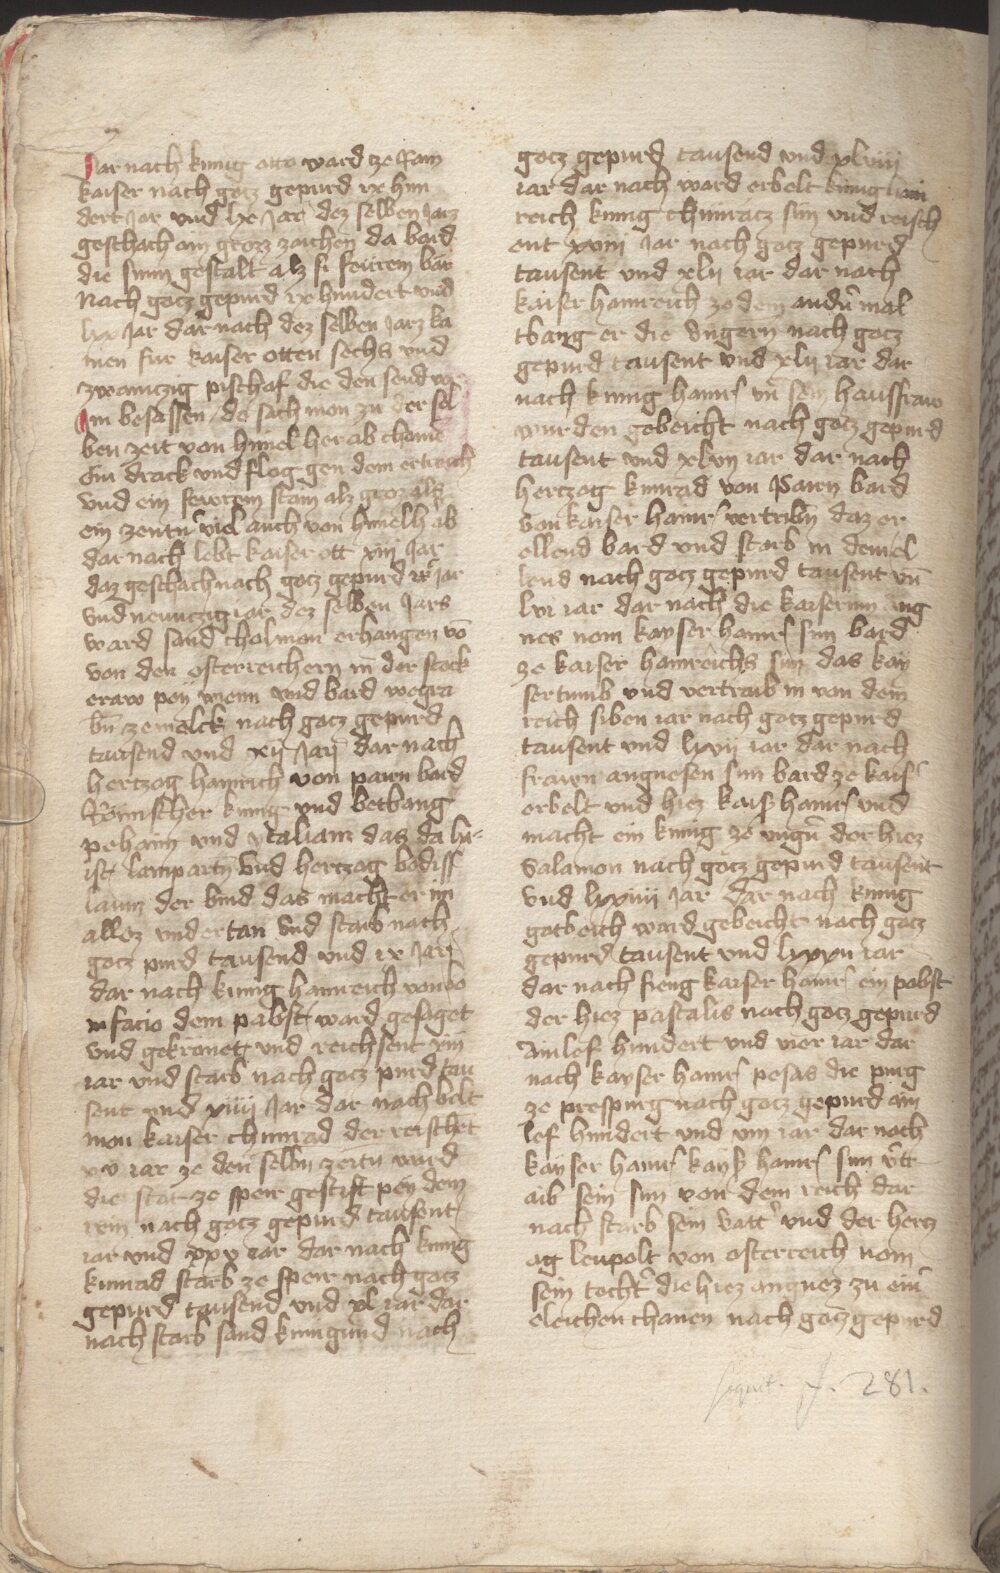 Dar nach kunig otto ward ze Ram
kaiser nach gotz gepurd ix hun
dert Jar vnd lx Jar dez selben Jarz
geschach ain grozz zaichen da bard
die sunn gestalt alz si feurein bar
Nach gotz gepurd ix hundert vnd
lxx Jar dar nach dez selben Jarz ka
men fur kaiser otten sechs vnd
zwainczig pischof die den send
Im besassen do sach mon zu der sel
ben zeit von himel her ab chome
Ein drack vnd flog gen dem ertreich
vnd ein fewrein stain alz groz alz
ein zentn viel auch von himel h ab
dar nach lebt kaiser ott xiij Jar
daz geschach nach gotz gepurd ix jar
vnd neunczig iar dez selben Jars
ward sand cholman erhangen vō
von den osterreichern in der stock
eraw pey wienn vnd bard wegra
bn̄ ze melck nach gotz gepurd
tausend vnd xij Jar dar nach
hertzog hainrich von pairn bard
Römischer kunig vnd betbang
pehaim vnd ytaliam das da hai-
ist lampartn vnd hertzog bodiss
laum der bind das macht er im
allez vndertan vnd starb nach
gotz purd tausend vnd ix Jar
dar nach kunig hainreich von bo
nifacio dem pabst ward gesiget
vnd gekronet vnd reichsent xiij
iar vnd starb nach gotz purd tau
sent vnd xiiij Jar dar nach belt
mon kaiser chunrad der reischet
xv iar ze den selbn zeitn ward
die stat ze speir gestift pey dem
rein nach gotz gepurd tausent
iar vnd xxv iar dar nach kunig
kunrad starb ze speir nach gotz
gepurd tausend vnd xl iar dar
nach starb sand kunigund nach
gotz gepurd tausend vnd xlviij
iar dar nach ward erbelt kunig hain
reich kunig chunratz sun vnd reisch
ent xviij Jar nach gotz gepurd
tausent vnd xlij iar dar nach
kaiser hainreich ze dem andn mal
tbang er die vngern nach gotz
gepurd tausent vnd xlij iar dar
nach kunig hainr vn sein haussfraw
wurden gebeicht nach gotz gepurd
tausent vnd xlvij iar dar nach
hertzog kunrad von Pairn bard
von kaiser hainr vertribn daz er
ellend bard vnd starb in dem el
lend nach gotz gepurd tausent vn̄
lvi iar dar nach die kaiserinn ang
nes nom kayser hainr sun bard
ze kaiser hainreichs sun das kay
sertumb vnd vertraib in von dem
reich siben iar nach gotz gepurd
tausent vnd lxvij iar dar nach
frawn angnesen sun bard ze kais
erbelt vnd hiez kais hainr vnd
macht ein kunig ze vngn der hiez
Salamon nach gotz gepurd tausent
vnd lxxiiij Jar dar nach kunig
gotbeich ward gebeicht nach gotz
gepurd tausent vnd lxxxij iar
dar nach fieng kaiser hainr ein pabst
der hiez pastalis nach gotz gepurd
Ainlef hundert vnd vier iar dar
nach kayser hainr pesas die purg
ze prespurg nach gotz gepurd ain
lef hundert vnd viij iar dar nach
kayser hainr kays hainr sun vtr
aib sein sun von dem reich dar
nach starb sein vatt vnd der hertz
og leupolt von osterreich nom
sein tocht die hiez angnez zu ein
eleichen chanen nach gotz gepurd
sequit. f. 281.